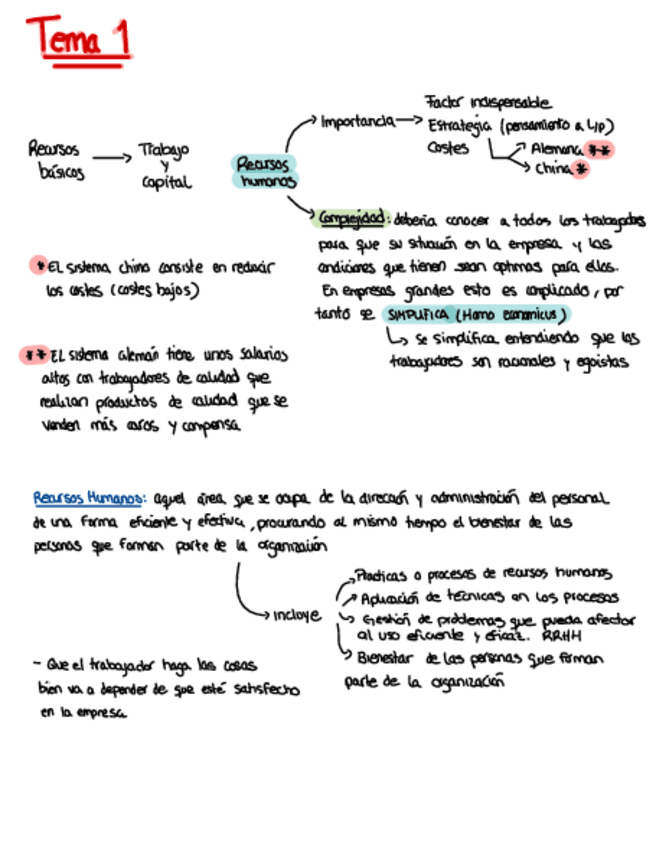 Tema 1
Recursos básicos → Trabajo y capital
Recursos humanos
→ Importancia → Factor indispensable
Estrategia (pensamiento a L/P)
Costes
→ Alemana **
→ China *
→ Complejidad: debería conocer a todos los trabajadores
para que su situación en la empresa y las
condiciones que tienen sean optimas para ellos.
En empresas grandes esto es complicado, por
tanto se SIMPLIFICA (Homo economicus)
↳ Se simplifica entendiendo que los
trabajadores son racionales y egoistas
* EL sistema chino consiste en reducir
los costes (costes bajos)
** EL sistema alemán tiene unos salarios
altos con trabajadores de calidad que
realizan productos de calidad que se
venden más caros y compensa
Recursos Humanos: aquel área que se ocupa de la dirección y administración del personal
de una forma eficiente y efectiva, procurando al mismo tiempo el bienestar de las
personas que forman parte de la organización
→ Incluye
→ Practicas o procesos de recursos humanos
→ Aplicación de técnicas en los procesos
→ Gestión de problemas que pueda afectar
al uso eficiente y eficaz. RRHH
→ Bienestar de las personas que forman
parte de la organización
- Que el trabajador haga las cosas
bien va a depender de que esté satisfecho
en la empresa